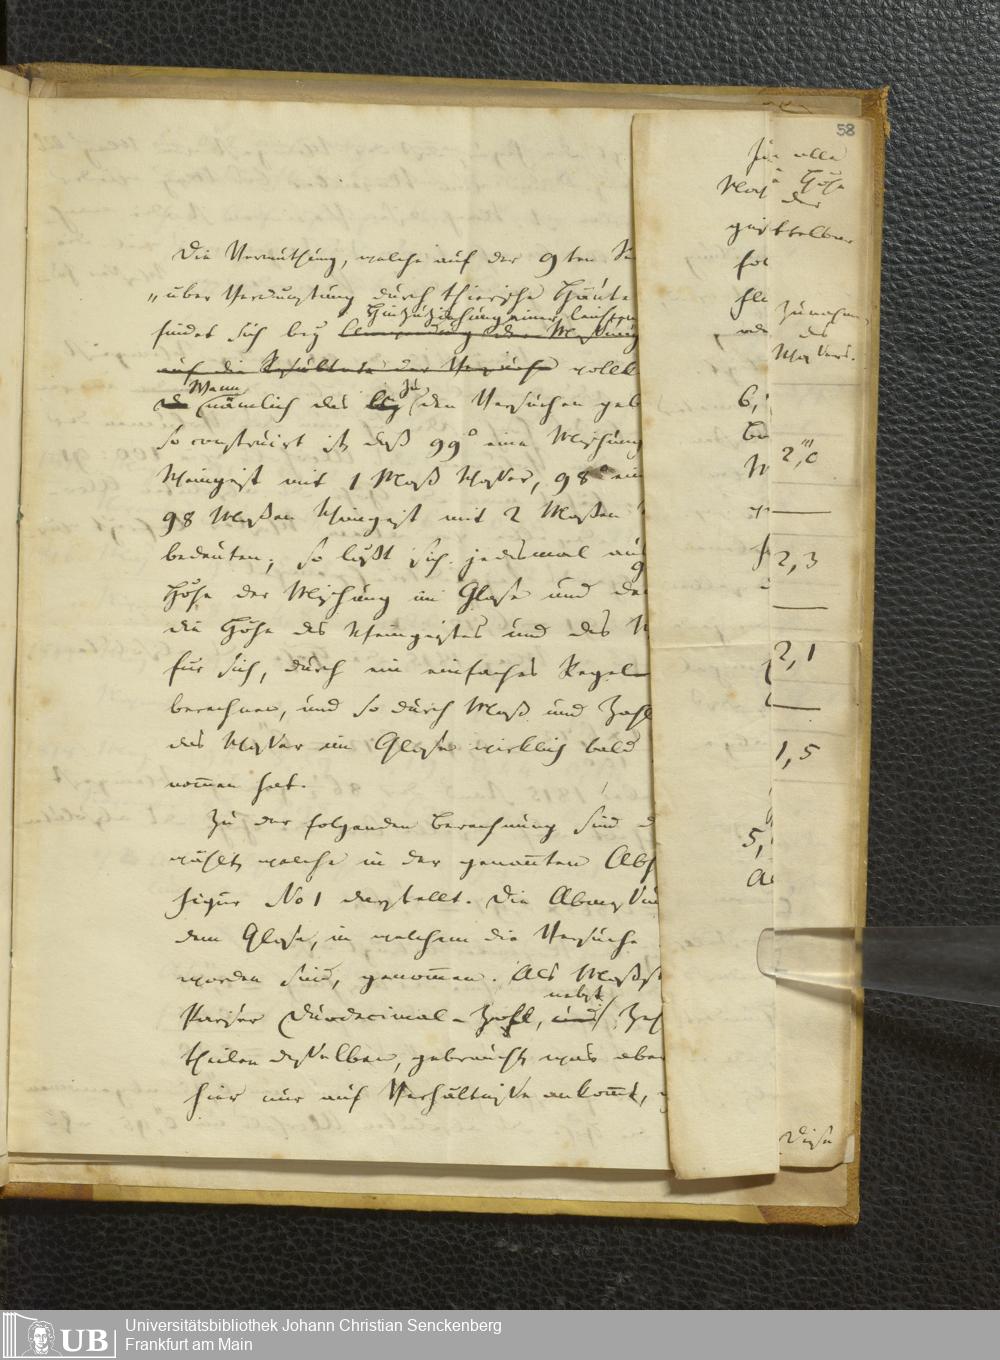 58
Die Vermuthung, welche auf der 9ten
„über Verdunstung durch thierische Häute
Hinzuziehung einer
findet sich bey Anwendung der
auf die Resultate der Versuche
Wenn zu
nämlich das bey den Versuchen
so construirt ist, daß 99° eine Mischung
Weingeist mit 1 Maß Wasser, 98°
98 Maßen Weingeist mit 2 Maßen
bedeuten; so läßt sich jedesmal aus
Höhe der Mischung im Glase und
die Höhe des Weingeistes und des
für sich, durch ein einfaches
berechnen, und so durch Maß und Zahl
das Wasser im Glase wirklich bald
nom̄en hat.
Zu der folgenden Berechnung sind
wählt, welche in der genan̄ten
Figur No 1 darstellt. Die
dem Glase, in welchem die Versuche
worden sind, genom̄en. Als
nebst
Pariser Duodecimal-Zoll, und
theilen desselben, gebraucht, was aber
hier nur auf Verhältnisse ankom̄t,
alle
Höhe
der
des
Wassers.
2,0
2,3
2,1
1,5
5,
Diese
Universitätsbibliothek Johann Christian Senckenberg
Frankfurt am Main
UB